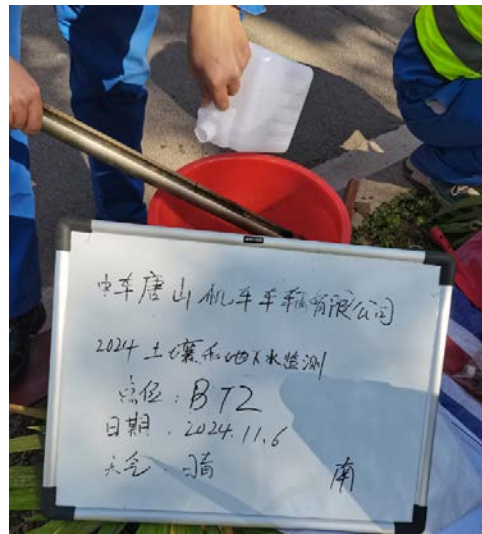 中车唐山机车车辆有限公司
2024土壤和地下水监测
点位：BT2
日期：2024.11.6
天气：晴 南